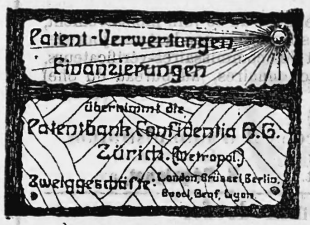 Patent-Verwertungen
Finanzierungen
übernimmt die
Patentbank Confidentia A.G.
Zürich. (Metropol.)
Zweiggeschäfte: London, Brüssel, Berlin,
Basel, Genf, Lyon